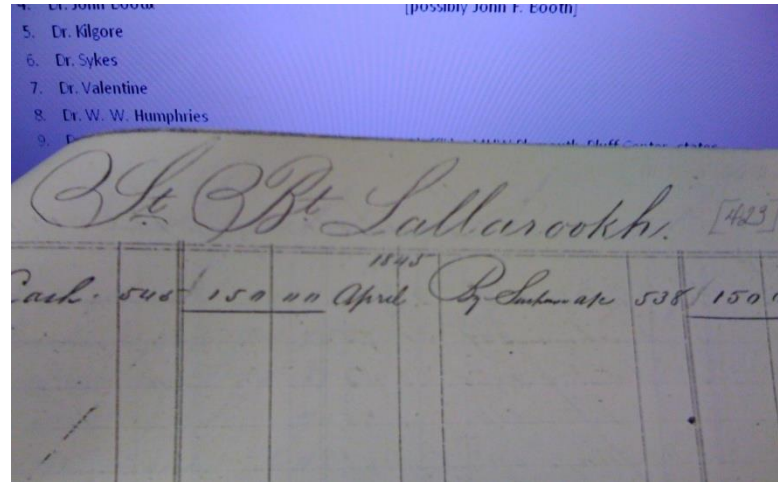 4. Dr. John Booth [possibly John F. Booth]
5. Dr. Kilgore
6. Dr. Sykes
7. Dr. Valentine
8. Dr. W. W. Humphries
9.
St. Bt. Lallarookh. [423]
1845
Cash. 545 150 00 April By 538 150